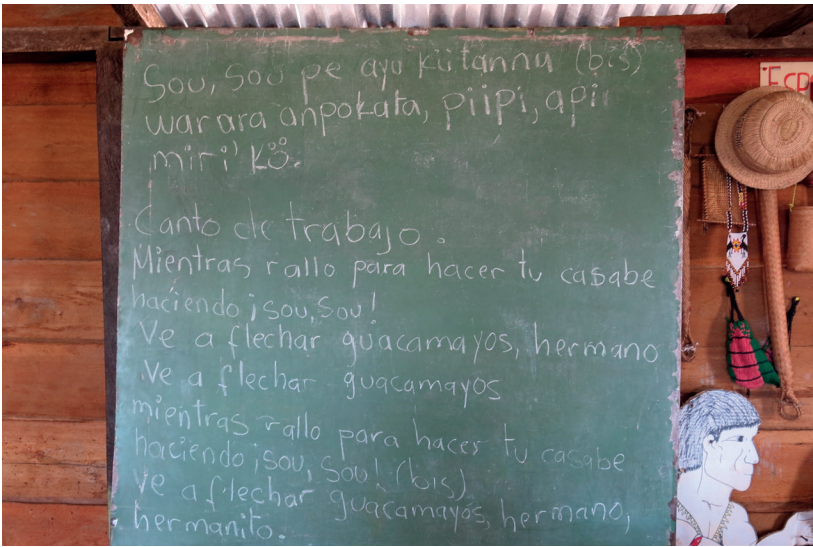 Sou, sou pe ayu küitannu (bis)
warara anpokata, piipi, api
miri' kü.
Canto de trabajo.
Mientras rallo para hacer tu casabe
haciendo ¡sou, sou!
Ve a flechar guacamayos, hermano
Ve a flechar guacamayos
mientras rallo para hacer tu casabe
haciendo ¡sou, sou! (bis)
Ve a flechar guacamayos, hermano,
hermanito.